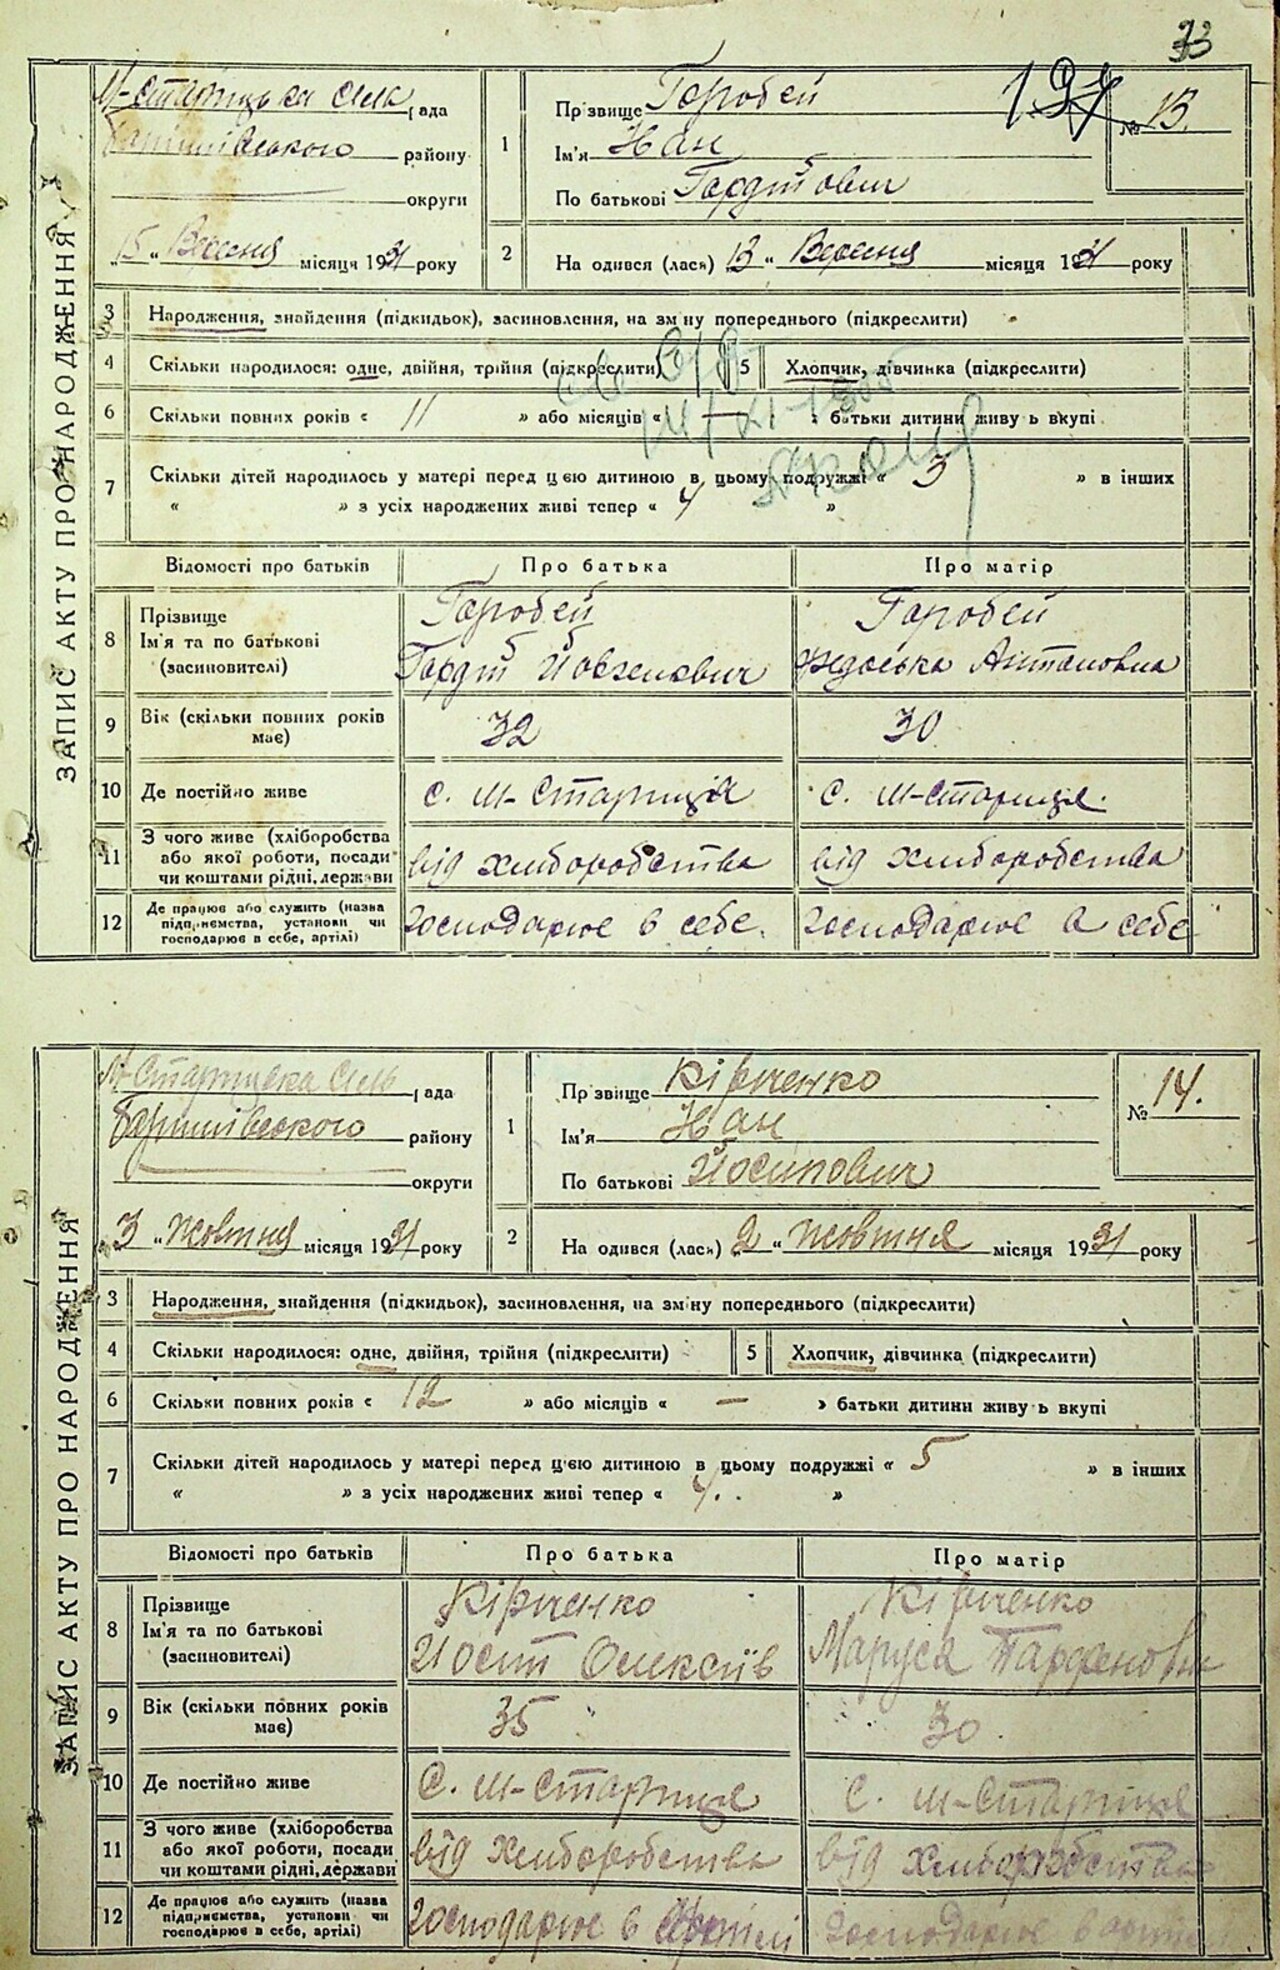 33
ЗАПИС АКТУ ПРО НАРОДЖЕННЯ
М-Старицька Сіль рада
Баришівського району
округи
„15“ Вересня місяця 1931 року
1
Прізвище Горобей
Ім'я Іван
По батькові Гордійович
№ 13.
2
На одився (лася) 13 “ Вересня місяця 1931 року
3 Народження, знайдення (підкидьок), засиновлення, на зміну попереднього (підкреслити)
4 Скільки народилося: одне, двійня, трійня (підкреслити) 5 Хлопчик, дівчинка (підкреслити)
6 Скільки повних років « 11 » або місяців « — » батьки дитини живу ь вкупі
7 Скільки дітей народилось у матері перед цією дитиною в цьому подружжі « 3 » в інших
« » з усіх народжених живі тепер « 4 »
Відомості про батьків Про батька Про матір
8 Прізвище Горобей Горобей
Ім'я та по батькові Гордій Йовхемович Федоська Антоновна
(засиновителі)
9 Вік (скільки повних років має) 32 30
10 Де постійно живе с. М-Стариця с. М-Стариця.
11 З чого живе (хліборобства або якої роботи, посади чи коштами рідні, держави від хліборобства від хліборобства
12 Де працює або служить (назва підприємства, установи чи господарює в себе, артілі) господарює в себе. господарює в себе
ЗАПИС АКТУ ПРО НАРОДЖЕННЯ
М-Старицька Сіль рада
Баришівського району
округи
„3“ Жовтня місяця 1931 року
1
Прізвище Кірпченко
Ім'я Іван
По батькові Йосипович
№ 14.
2
На одився (лася) 2 “ Жовтня місяця 1931 року
3 Народження, знайдення (підкидьок), засиновлення, на зміну попереднього (підкреслити)
4 Скільки народилося: одне, двійня, трійня (підкреслити) 5 Хлопчик, дівчинка (підкреслити)
6 Скільки повних років « 12 » або місяців « — » батьки дитини живу ь вкупі
7 Скільки дітей народилось у матері перед цією дитиною в цьому подружжі « 5 » в інших
« » з усіх народжених живі тепер « 4. »
Відомості про батьків Про батька Про матір
8 Прізвище Кірпченко Кірпченко
Ім'я та по батькові Йосип Олексіїв Маруся Парфеновна
(засиновителі)
9 Вік (скільки повних років має) 35 30.
10 Де постійно живе С. М-Стариця С. М-Стариця
11 З чого живе (хліборобства або якої роботи, посади чи коштами рідні, держави від Хліборобства від хліборобства
12 Де працює або служить (назва підприємства, установи чи господарює в себе, артілі) господарює в Артілі господарює в артілі